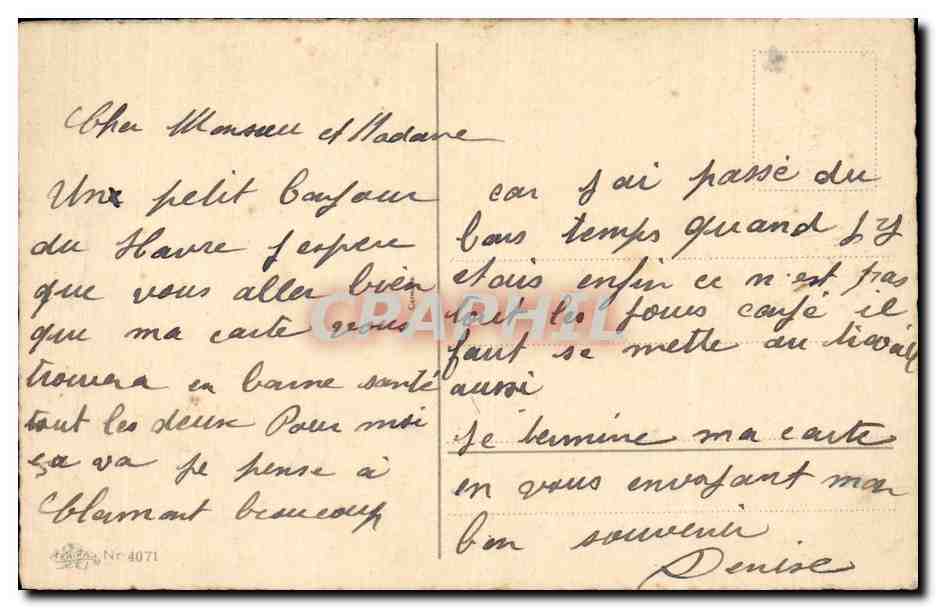 Cher Monsieu et Madame
Un petit bonjour
du Havre j espere
que vous aller bien
que ma carte vous
trouvera en bonne santé
tout les deux Pour moi
ça va je pense à
Clermont beaucoup
car j ai passé du
bons temps quand j y
etais enfin ce n'est pas
tout les jours congé il
faut se mette au travail
aussi
Je termine ma carte
en vous envoyant mon
bon souvenir
Denise
Nr 4071
CPAPHIL